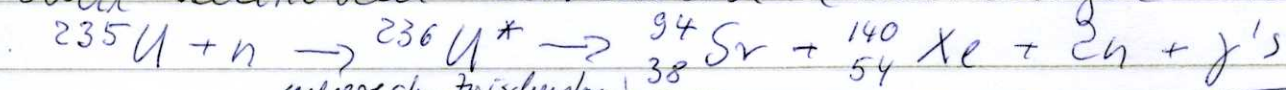 ²³⁵U + n → ²³⁶U* → ⁹⁴₃₈Sr + ¹⁴⁰₅₄Xe + 2n + γ's